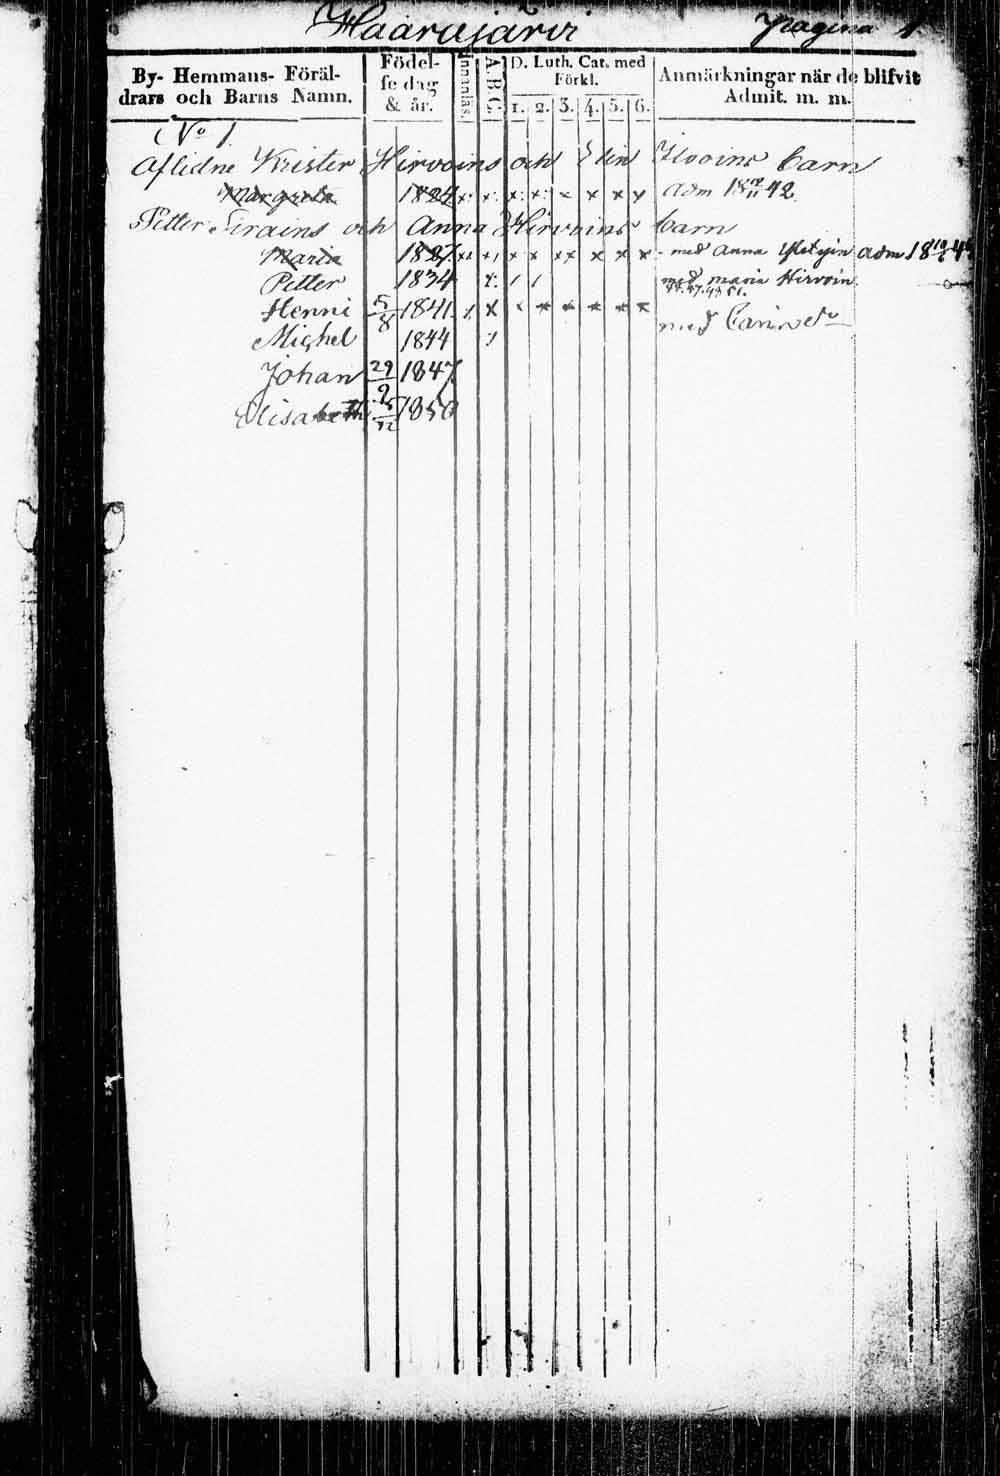 Haarajärvi Pagina 1
By- Hemmans- Föräldrars och Barns Namn. Födelse dag & år. Innanläs. A.B.C. D. Luth. Cat. med Förkl. 1. 2. 3. 4. 5. 6. Anmärkningar när de blifvit Admit. m. m.
No 1
Aflidne Krister Hirvoins och Elin Ilvoins barn
Margreta 1824 x x x x - x x x adm 18 42
Petter Sirains och Anna Hirvoins barn
Maria 1827 x x x x x x x x - med Anna adm 18
Petter 1834 med maria Hirvoin
44. 47. 49. 51.
Henni 5/8 1841 x x x x x x med Carin
Michel 1844
Johan 29/9 1847
Elisabeth 5/12 1850